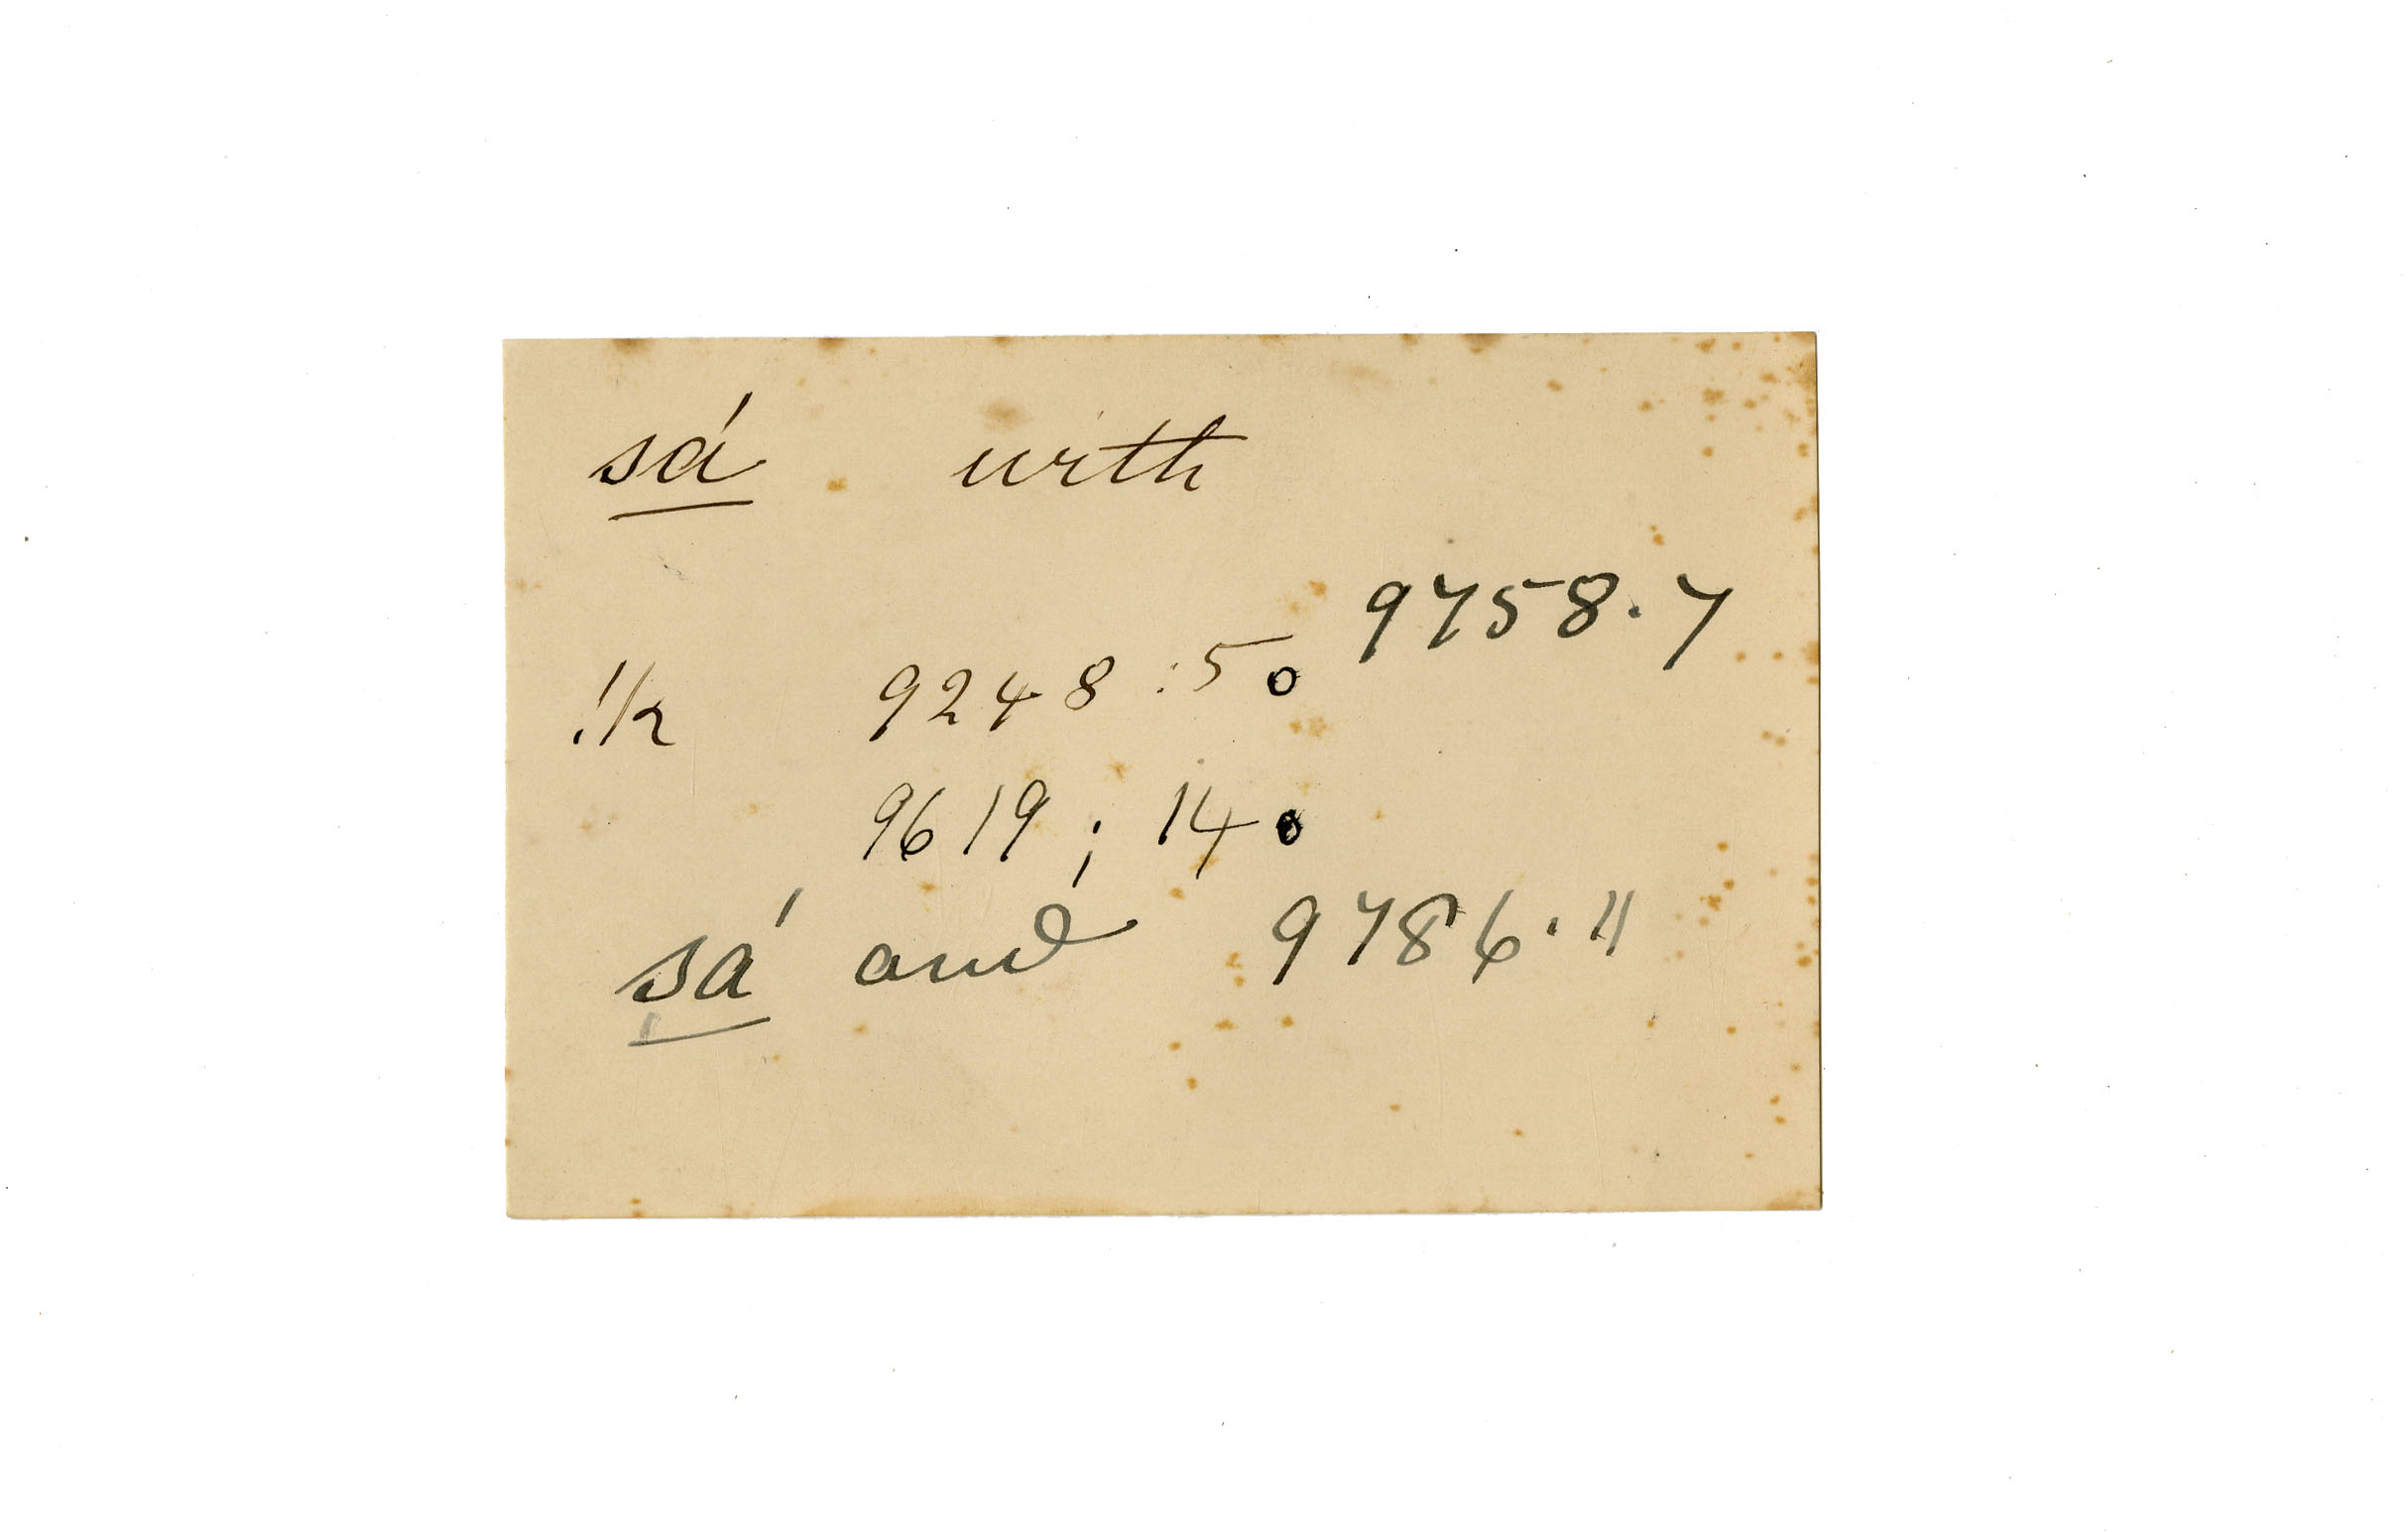 sá with
9758.7
!k 9248:5o
9619; 14o
sá and 9786.11